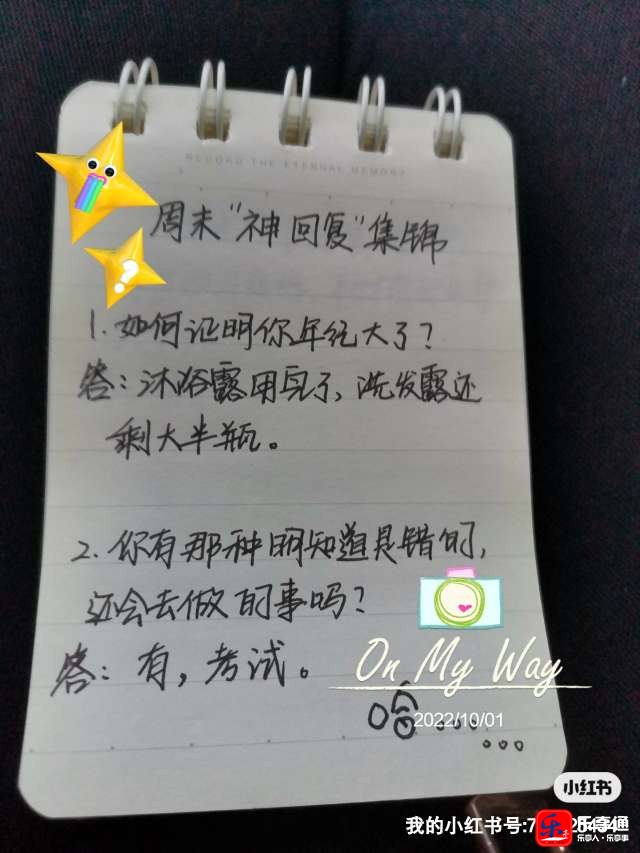 RECORD THE ETERNAL MEMORY
周末“神回复”集锦
1. 如何证明你年纪大了？
答：沐浴露用完了，洗发露还
剩大半瓶。
2. 你有那种明知道是错的，
还会去做的事吗？
答：有，考试。
On My Way
哈……
2022/10/01
小红书
我的小红书号:7
乐享通
乐享人·乐享事